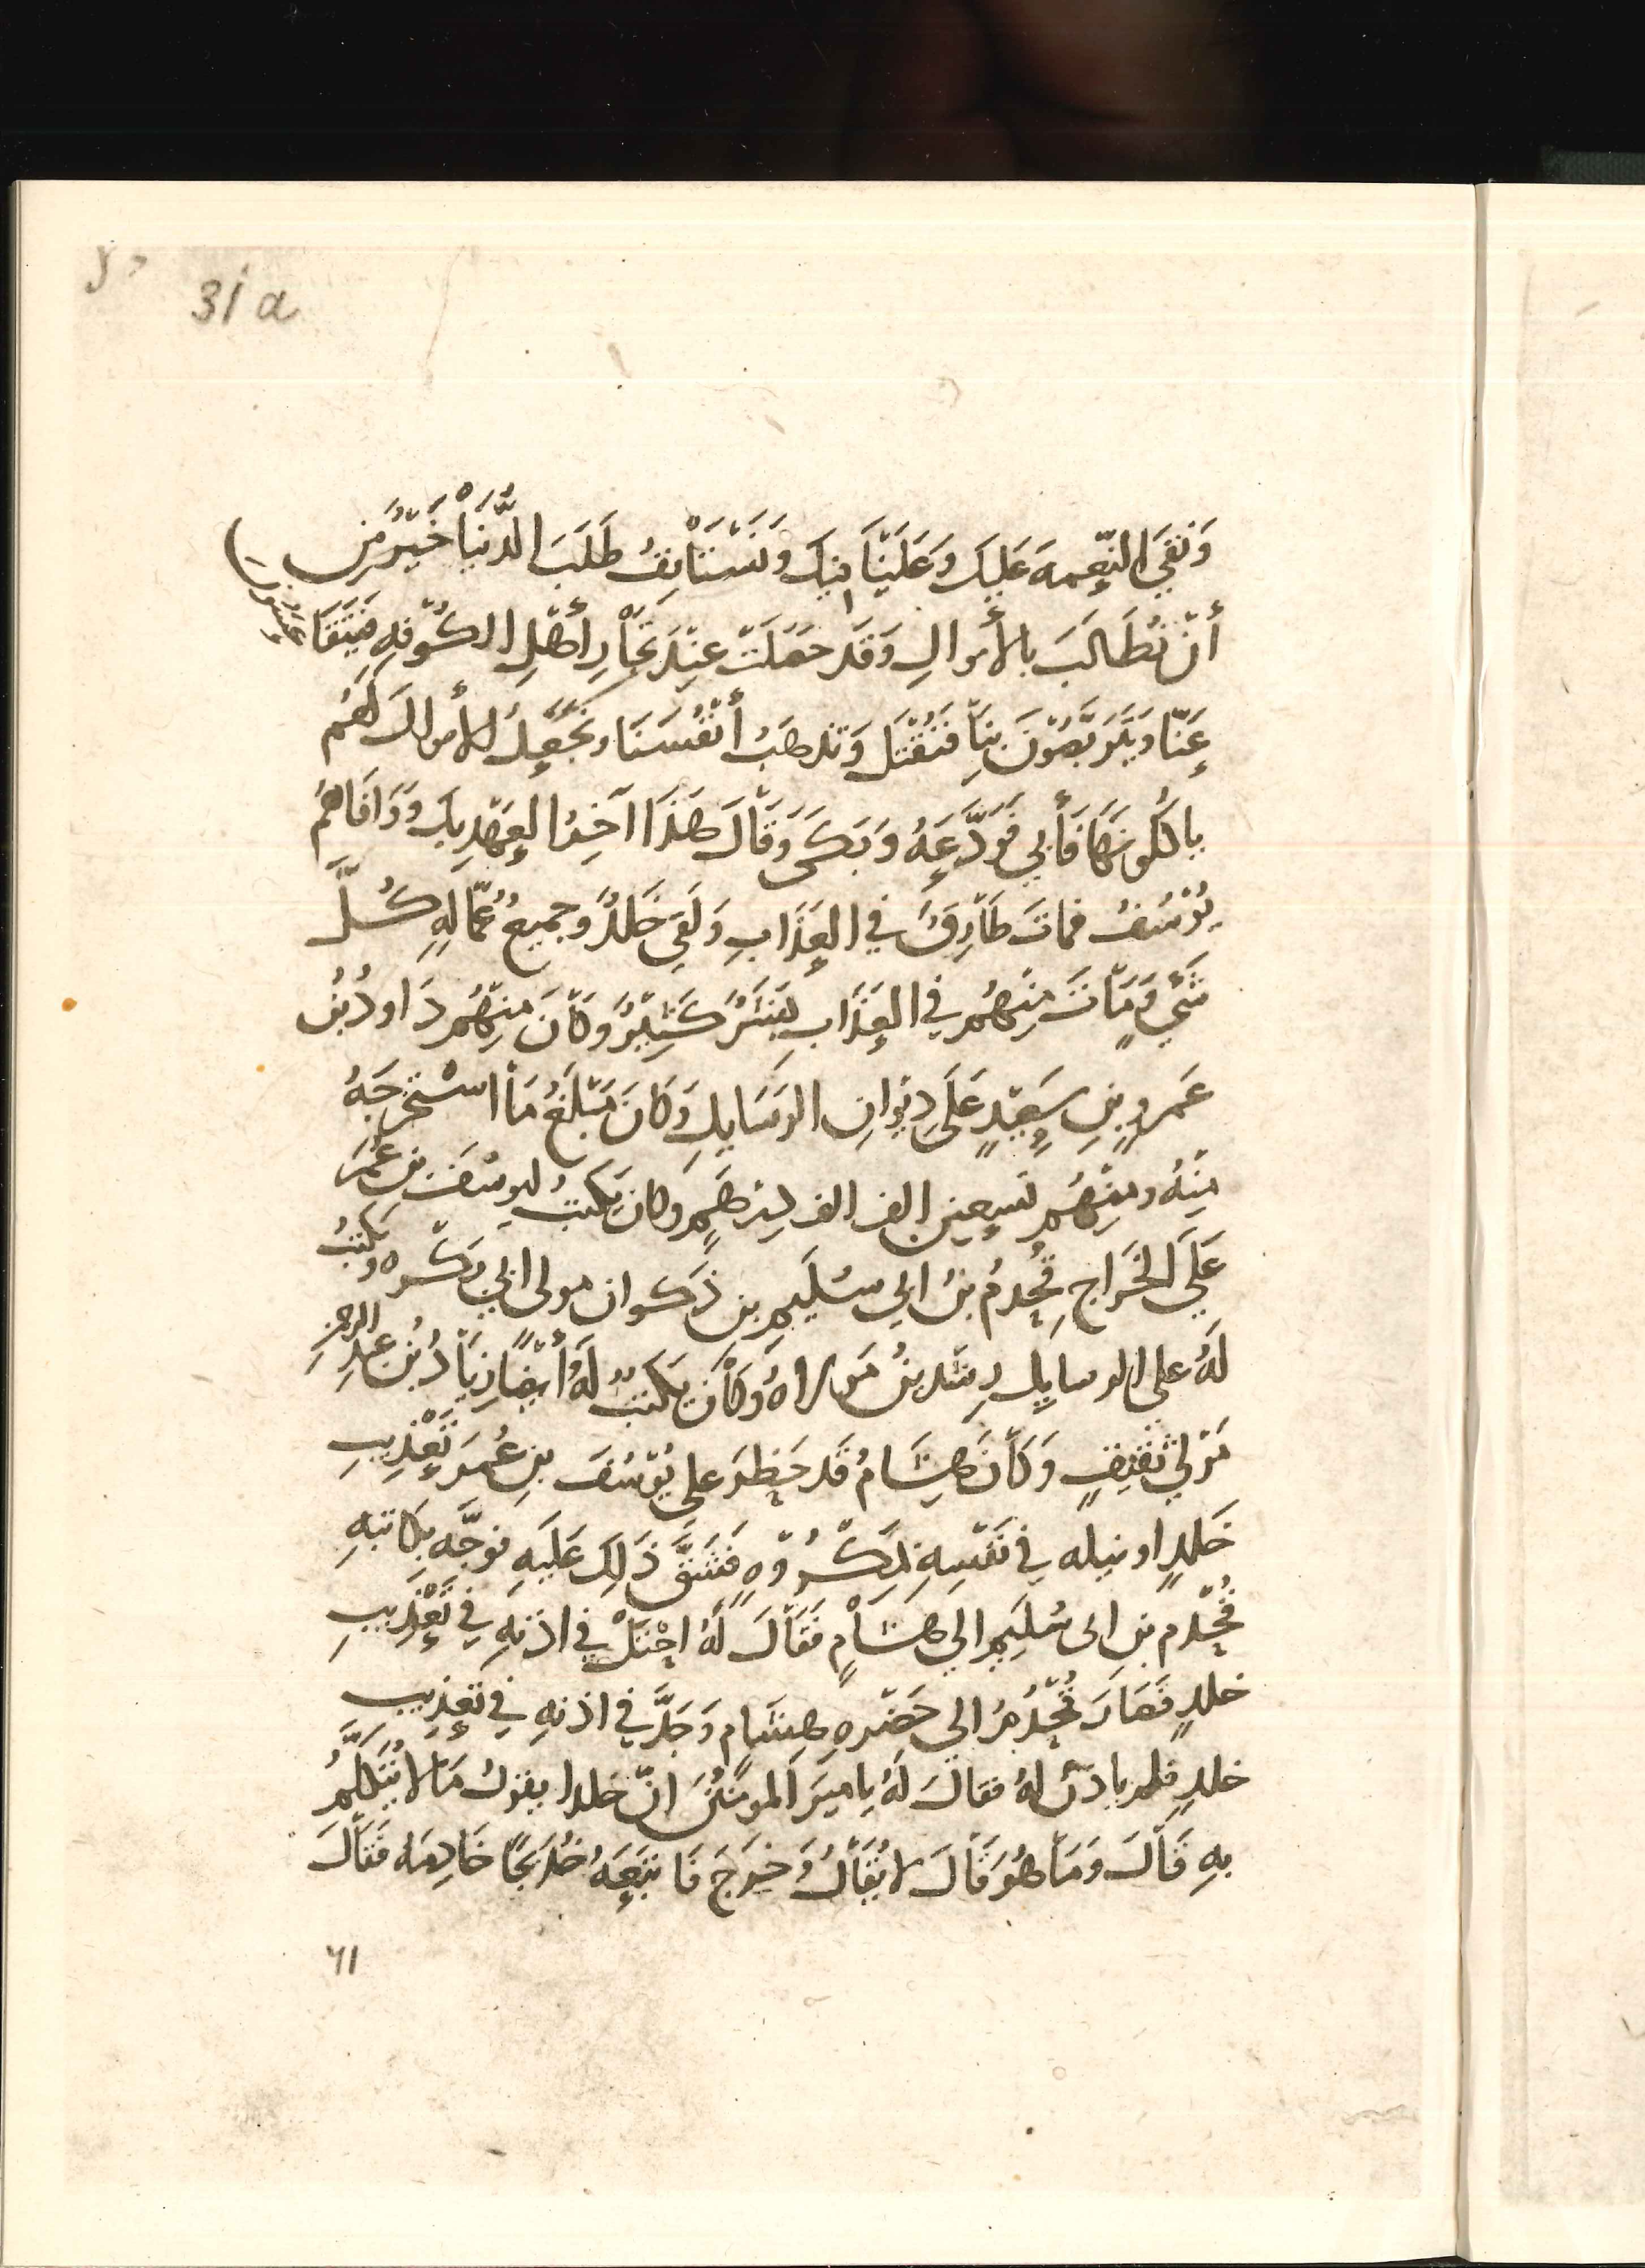 31a
وَنَفِيَ النِّعمهَ عَلِيكَ وَعَلَيْنَا مِنكَ وَنَسْتَأنِفُ طَلَبَ الدُّنْيَا خَيْرٌ مِن
أنْ نُطَالَبَ بالأموالِ وَقَد حَصَلَت عِنْدَ تُجَّارِ أهْلِ الكُوْفَهِ فَيَتَقَاعَسُون
عَنّا وَيَتَرَبَّصُوْنَ بِنَا فَنُقْتَل وَتذهبَ أنْفُسَنَا وتَحْصُلُ الأموالَ لَهُم
ياكلونهَا فَأبي فَوَدَّعَهُ وَبَكَى وَقَالَ هَذَا آخِرُ العَهْدِ بِكَ وَوَافَاهُم
يُوْسُفُ فماتَ طَارِقٌ في العَذَابِ وَلَقَى خَلِدٌ وجميعُ عُمّالِهِ كُلَّ
شَيْءٍ وَمَاتَ مِنْهُم في العَذَابِ بَشَرٌ كَثِيْرٌ وَكَانَ مِنْهُم دَاودُ بْنُ
عَمروٍ بنِ سَعِيْدٍ عَلَى دِيْوانِ الرسَايلِ وَكَانَ مَبْلَغُ مَا اسْتَخرجَهُ
مِنْهُ ومِنهُم تسعين الف الف دِرْهَمٍ وكانَ يَكتبُ ليوسُفَ بنِ عُمَرَ
عَلَى الخَراجِ قُحْدمُ بنُ ابي سُلَيمِ بن ذَكوان مولى ابي بَكْره ويكتُبُ
لَهُ على الرسايِل رشدينُ مَولاهُ وَكَان يَكتبُ لَهُ أيْضًا زِيَادُ بْنُ عَبدِ الرحمنِ
مَوْلى ثَقِيفٍ وَكَانَ هِشَامُ قَد حَظَرَ على يُوْسُفَ بنِ عُمَرَ تَعْذِيبِ
خَلدٍ او نيله في نَفْسِهِ بِمَكْرُوْهٍ فَشَقَّ ذَلِكَ عَلَيهِ فوجَّه بِكاتبهِ
قُحْدم بن ابى سُلَيمٍ الي هشَامٍ فَقَالَ لَهُ احْتَلْ في اذنهِ في تَعْذِيبِ
خلدٍ فَصَارَ قُحْدُمُ الي حَضرهِ هِشَامٍ وَجَدَّ في اذنهِ في تَعذيبِ
خلدٍ فلم ياذنْ لهُ فقالَ لَهُ يا ميرَ المومنيْنَ انّ خلدا يقولُ مَا لا يُتَكلَّمُ
بهِ قَالَ وَمَا هُوَ قَالَ لا يُقَالُ وَخرَجَ فَاتبَعَهُ خَادِمَه فقَالَ
٦١